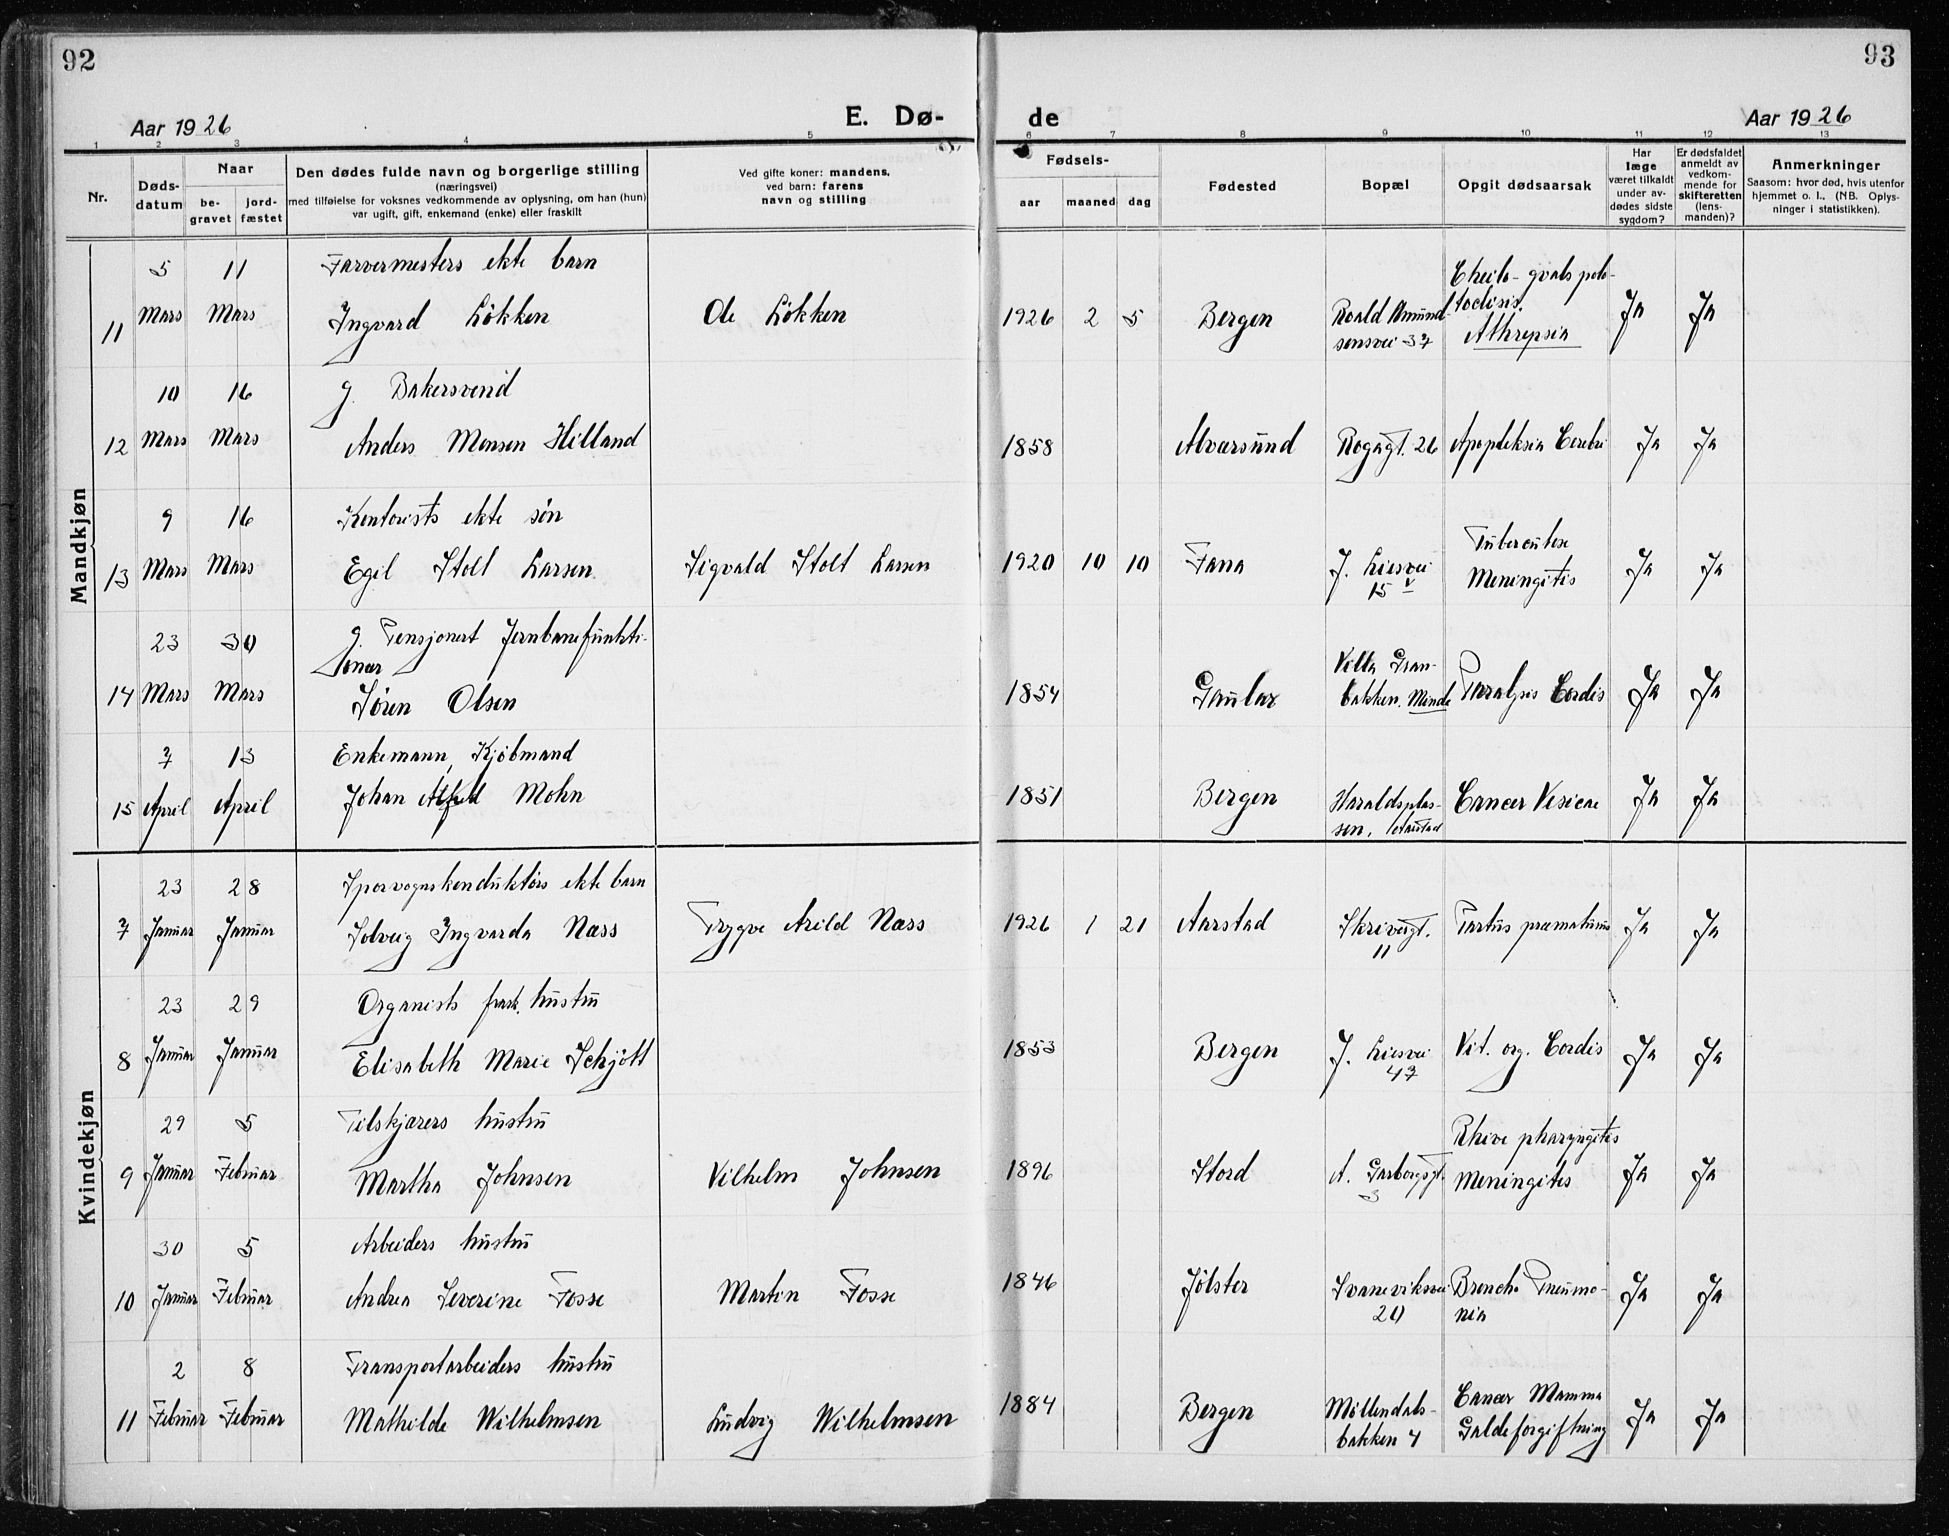 92
93
Aar 1926
E. Dø-
de
Aar 1926
1 2 3 4 5 6 7 8 9 10 11 12 13
Nr.
Døds-
datum
Naar
be-
gravet
jord-
fæstet
Den dødes fulde navn og borgerlige stilling
(næringsvei)
med tilføielse for voksnes vedkommende av oplysning, om han (hun)
var ugift, gift, enkemand (enke) eller fraskilt
Ved gifte koner: mandens,
ved barn: farens
navn og stilling
Fødsels-
aar maaned dag
Fødested
Bopæl
Opgit dødsaarsak
Har
læge
været tilkaldt
under av-
dødes sidste
sygdom?
Er dødsfaldet
anmeldt av
vedkom-
mende for
skifteretten
(lens-
manden)?
Anmerkninger
Saasom: hvor død, hvis utenfor
hjemmet o. l., (NB. Oplys-
ninger i statistikken).
Mandkjøn
5 11 Farvermesters ekte barn
11 Mars Mars Ingvard Løkken Ole Løkken 1926 2 5 Bergen Roald Amund-
sensvei 37
Athrepsia
Ja Ja
10 16 g. Bakersvend
12 Mars Mars Anders Monsen Hilland 1858 Alversund Rogagt. 26 Apopleksia Cerebri Ja Ja
9 16 Kontorists ekte søn
13 Mars Mars Egil Stolt Larsen Sigvald Stolt Larsen 1920 10 10 Fana J. Liesvei
15 V
Tuberculose
Meningitis
Ja Ja
23 30 g. Pensjonert Jernbanefunkti-
onær
14 Mars Mars Søren Olsen 1854 Gaular Villa Gran-
bakken. Minde
Paralysis Cordis Ja Ja
7 13 Enkemann, Kjøbmand
15 April April Johan Alfred Mohn 1851 Bergen Haraldsplas-
sen, Aarstad
Cancer Vesicae Ja Ja
Kvindekjøn
23 28 Sporvognskonduktørs ekte barn
7 Januar Januar Solveig Ingvarda Næss Trygve Arild Næss 1926 1 21 Aarstad Skrivergt.
11
Partus præmaturus Ja Ja
23 29 Organists frask. hustru
8 Januar Januar Elisabeth Marie Schjøtt 1853 Bergen J. Liesvei
47
Vit. org. Cordis Ja Ja
29 5 Filskjærers hustru
9 Januar Februar Martha Johnsen Vilhelm Johnsen 1896 Stord A. Garborgsgt.
3
pharyngitis
Meningitis
Ja Ja
30 5 Arbeiders hustru
10 Januar Februar Andrea Severine Fosse Martin Fosse 1846 Jølster Svaneviksvei
20
Broncho Pneumo-
nia
Ja Ja
2 8 Transportarbeiders hustru
11 Februar Februar Mathilde Wilhelmsen Ludvig Wilhelmsen 1884 Bergen Møllendals-
bakken 4
Cancer Mamma
Galdeforgiftning
Ja Ja